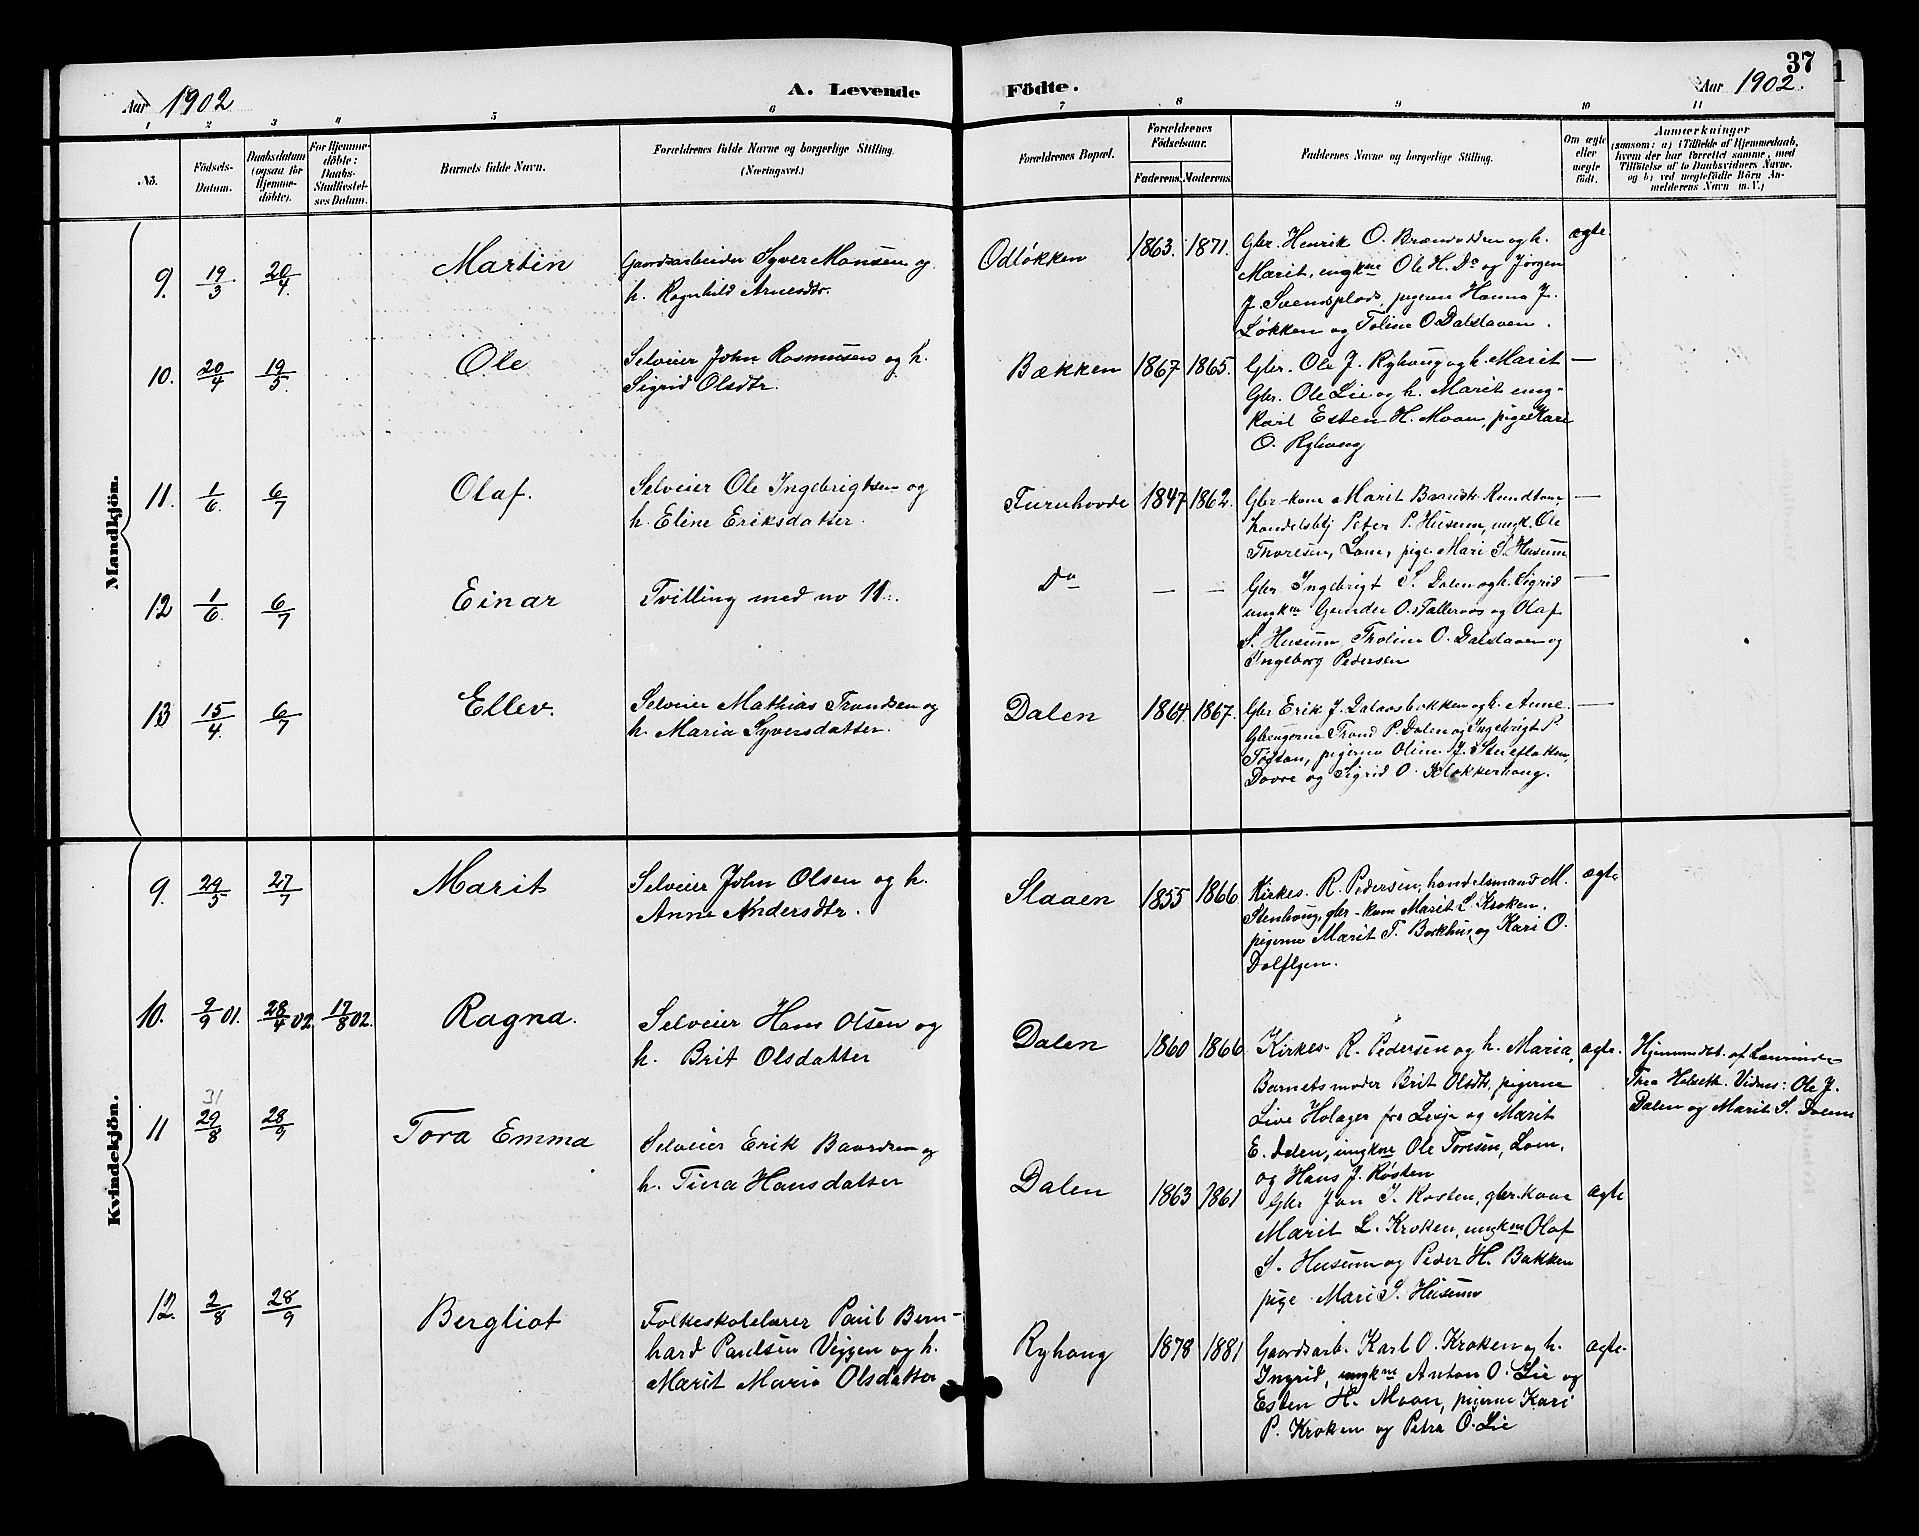 37
1
Aar 1902
A. Levende
Födte.
Aar 1902.
1 2 3 4 5 6 7 8 9 10 11
No.
Födsels-
Datum.
Daabsdatum
(ogsaa for
Hjemme-
døbte).
For Hjemme-
døbte:
Daabs-
Stadfæstel-
ses Datum.
Barnets fulde Navn.
Forældrenes fulde Navne og borgerlige Stilling.
(Næringsvei.)
Forældrenes Bopæl.
Forældrenes
Födselsaar.
Faderens. Moderens.
Faddernes Navne og borgerlige Stilling.
Om ægte
eller
uægte
født.
Anmærkninger
(saasom: a) i Tilfælde af Hjemmedaab,
hvem der har forrettet samme, med
Tilföielse af to Daabsvidners Navne.
og b) ved uægtefödte Börn An-
melderens Navn m. V.)
Mandkjön.
9. 19/3 20/4. Martin
Gaardsarbeider Syver Monsen og
h. Ragnhild Arnesdtr.
Odløkken 1863. 1871.
Gbr. Henrik O. Brænvolden og h.
Marit, ungkne Ole H. Do og Jørgen
J. Svensplads, pigerne Hanna J.
Løkken og Toline O Dalslaaen.
ægte
10. 20/4 19/5. Ole
Selveier John Rasmusen og h.
Sigrid Olsdtr.
Bækken 1867 1865.
Gbr. Ole J. Ryhaug og h. Marit
Gbr. Ole Lie og h. Marit ung-
karl Esten H. Moan, pige Kari
O. Ryhaug
—
11. 1/6. 6/7 Olaf.
Selveier Ole Ingebrigtsen og
h. Eline Eriksdatter.
Furuhovde 1847 1862.
Gbr-kone Marit Baardsdtr. Rundtom
handelsbtj Peter P. Husum, ungk. Ole
Thoresen, Lom, pige Mari S. Husum
—
12 1/6. 6/7 Einar
Tvilling med no 11.
Do — —
Gbr Ingebrigt S. Dalen og h. Sigrid
ungkne Gunder O. Talleraas og Olaf
S. Husum Tholine O. Dalslaaen og
Ingeborg Pedersen
—
13 15/4. 6/7 Ellev.
Selveier Mathias Trondsen og
h. Maria Syversdatter.
Dalen 1864. 1867.
Gbr Erik J. Dalaasbakken og h. Anne
Trond P. Dalen og Ingebrigt P.
pigerne Oline J.
Dovre og Sigrid O. Klokkerhaug.
—
Kvindekjön.
9. 29/5 27/7 Marit
Selveier John Olsen og h.
Anne Andersdtr.
Slaaen 1855 1866
Kirkes. R. Pedersen, handelsmand M.
Stenhaug, gbr-kone Marit L. Kroken.
pigerne Marit T. Barkhus, og Kari O.
ægte
10. 9/9 01. 28/4 02. 17/8 02. Ragna.
Selveier Hans Olsen og
h. Brit Olsdatter
Dalen 1860 1866
Kirkes. R. Pedersen og h. Maria,
Barnets moder Brit Olsdtr, pigerne
Live Holager fra Lesje og Marit
E. Dalen, ungkne Ole Toresen, Lom,
og Hans J. Røsten
ægte.
Hjemmedbt. af
Thea Holseth. Vidner: Ole J.
Dalen og Marit S. Dalen
31
11 29/8 28/9 Tora Emma
Selveier Erik Baardsen og
h. Tina Hansdatter
Dalen 1863 1861
Gbr Jon J. Rosten, gbr. kone
Marit L. Kroken, ungkne Olaf
S. Husum og Peder H. Bakken
pige Mari S. Husum
ægte
12. 2/8 28/9 Bergliot
Folkeskolelærer Paul Bern-
hard Paulsen Viggen og h.
Marit Maria Olsdatter
Ryhaug 1878 1881
Gaardsarb. Karl O. Kroken og h.
Ingrid, ungkne Anton O. Lie og
Esten H. Moan, pigerne Kari
P. Kroken og Petra O. Lie
ægte.